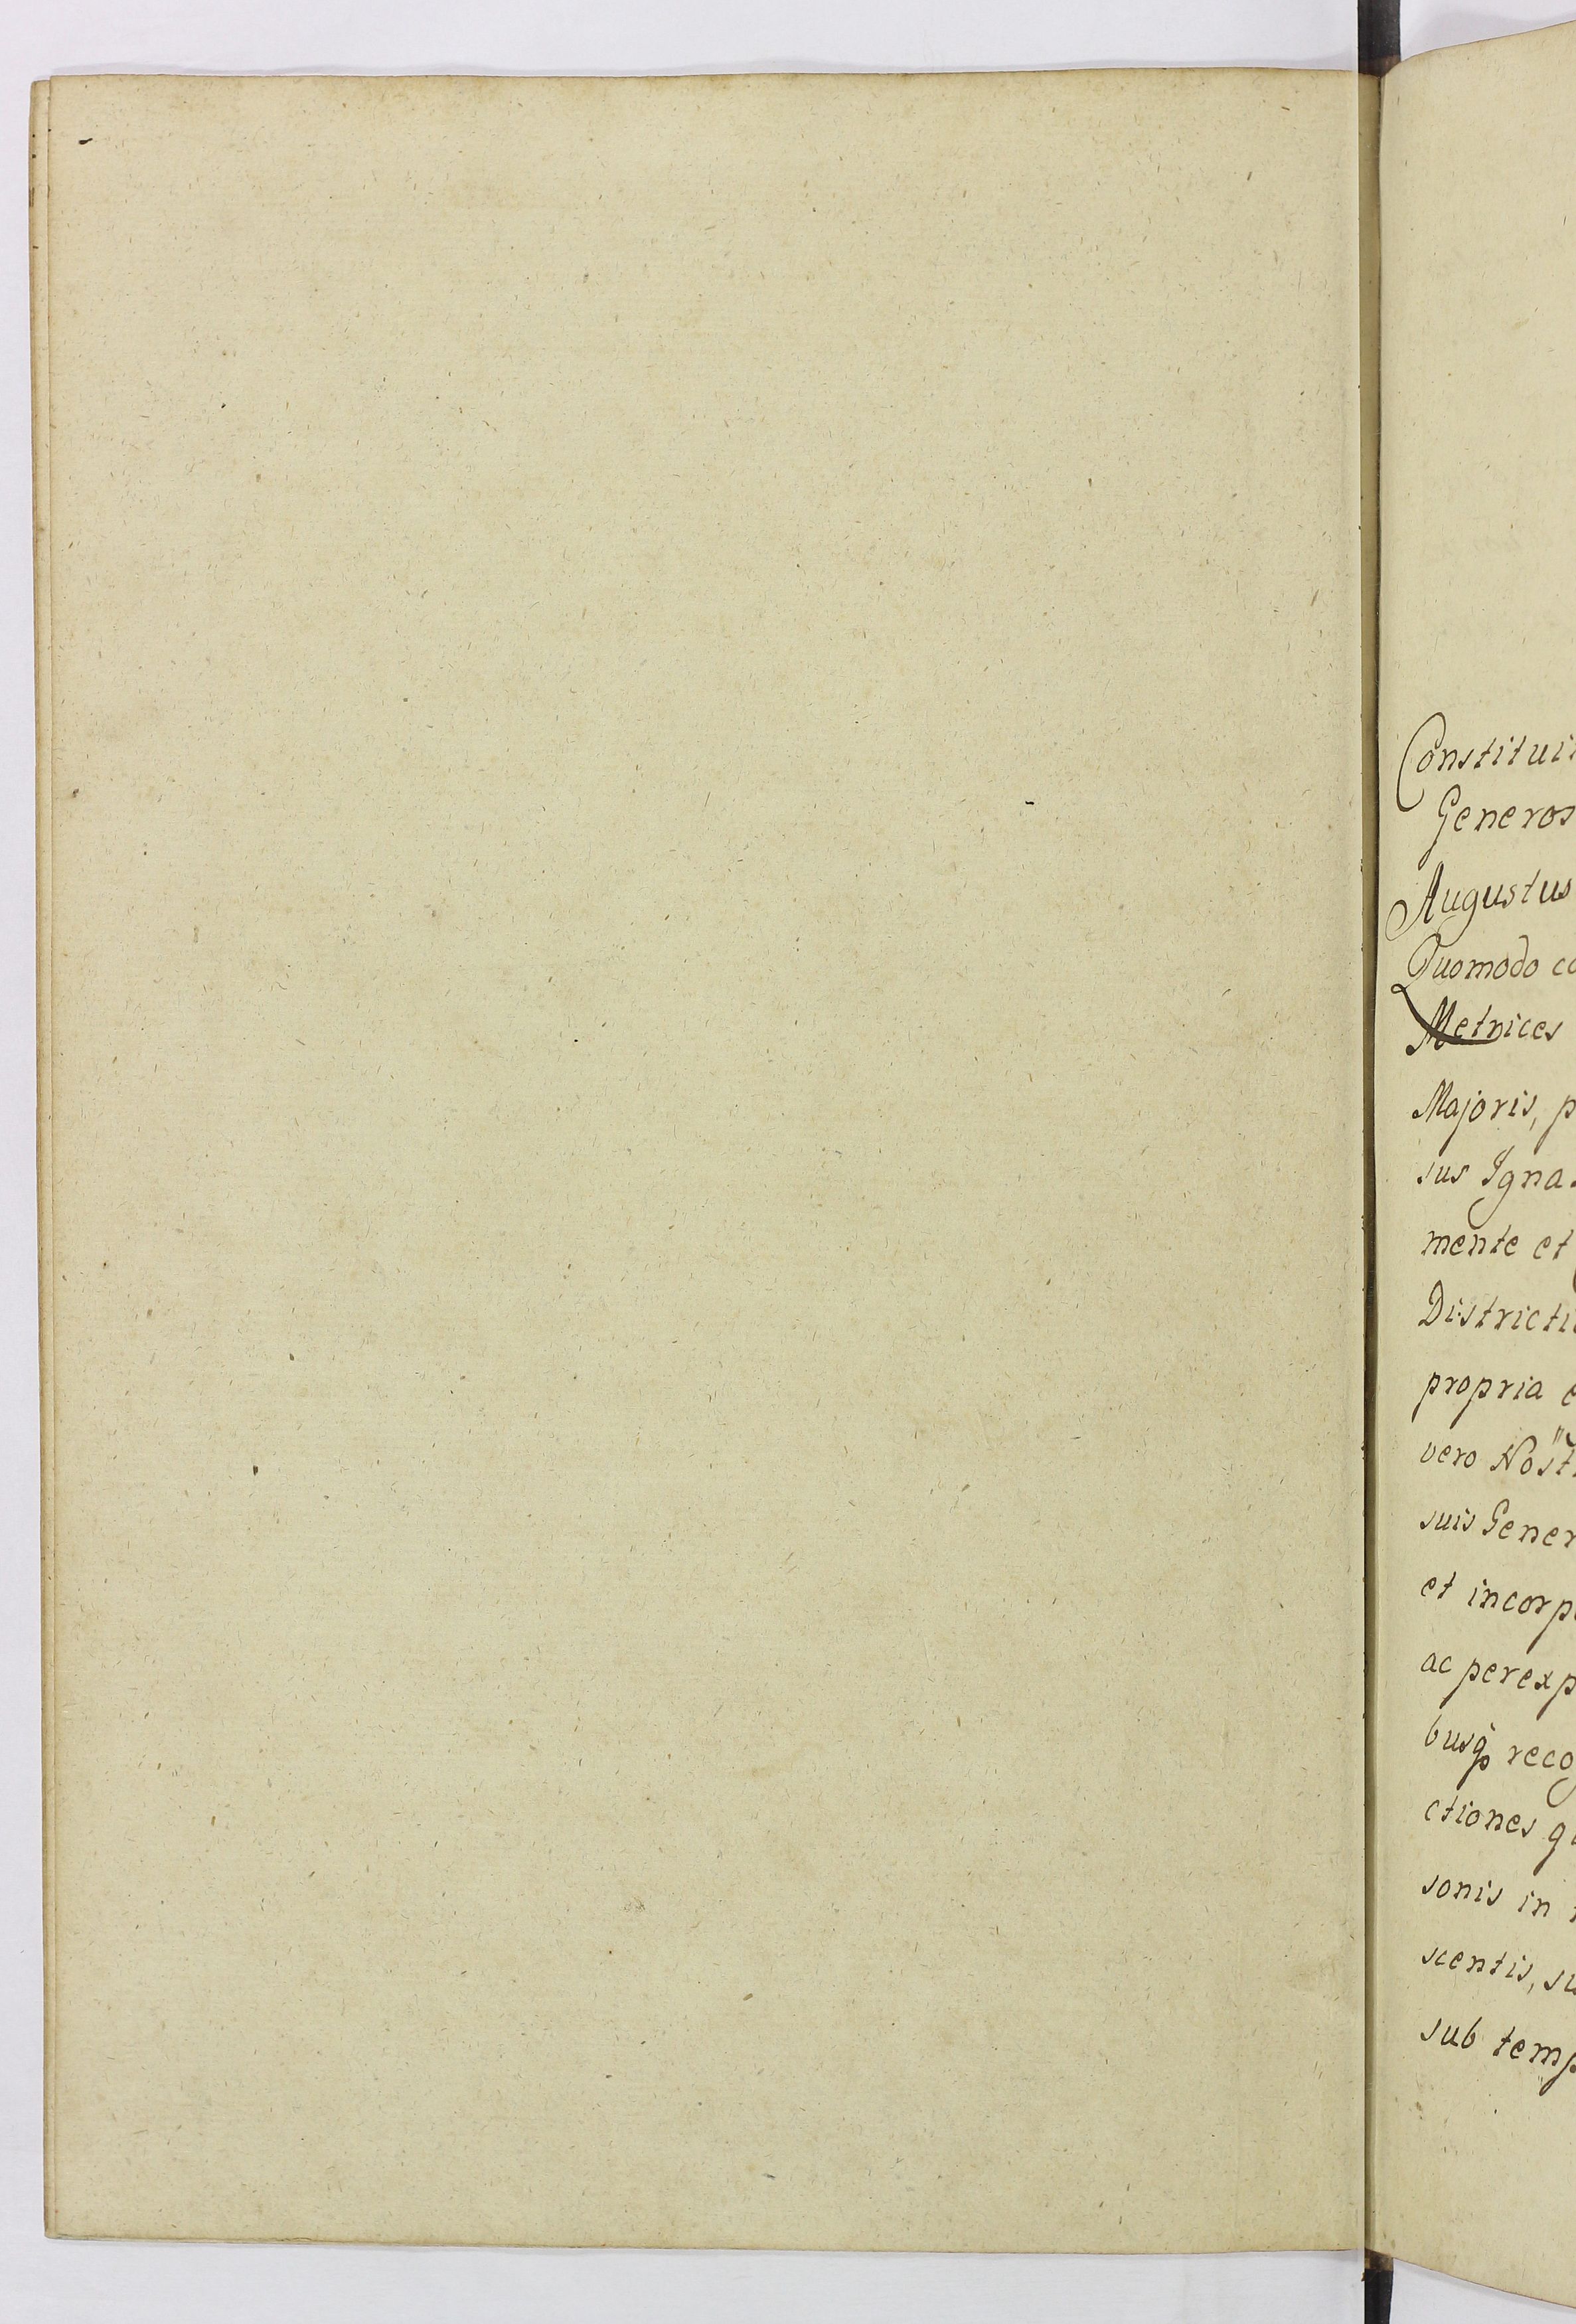 Constitui
Generos
Augustus
Quomodo co
Metrices
Majoris, p
sus Igna
mente et
Districti
propria
vero Nost
suis Gener
et incorp
ac perexp
busq reco
ctiones q
sonis in
scentis, su
sub temp